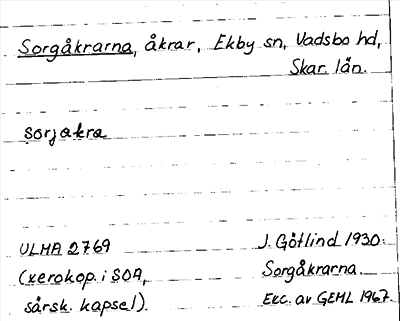 Sorgåkrarna, åkrar, Ekby sn, Vadsbo hd,
Skar. län.
sorjakra
ULMA 2769
(xerokop. i SOA,
särsk. kapsel).
J. Götlind 1930.
Sorgåkrarna.
Exc. av GEHL 1967.